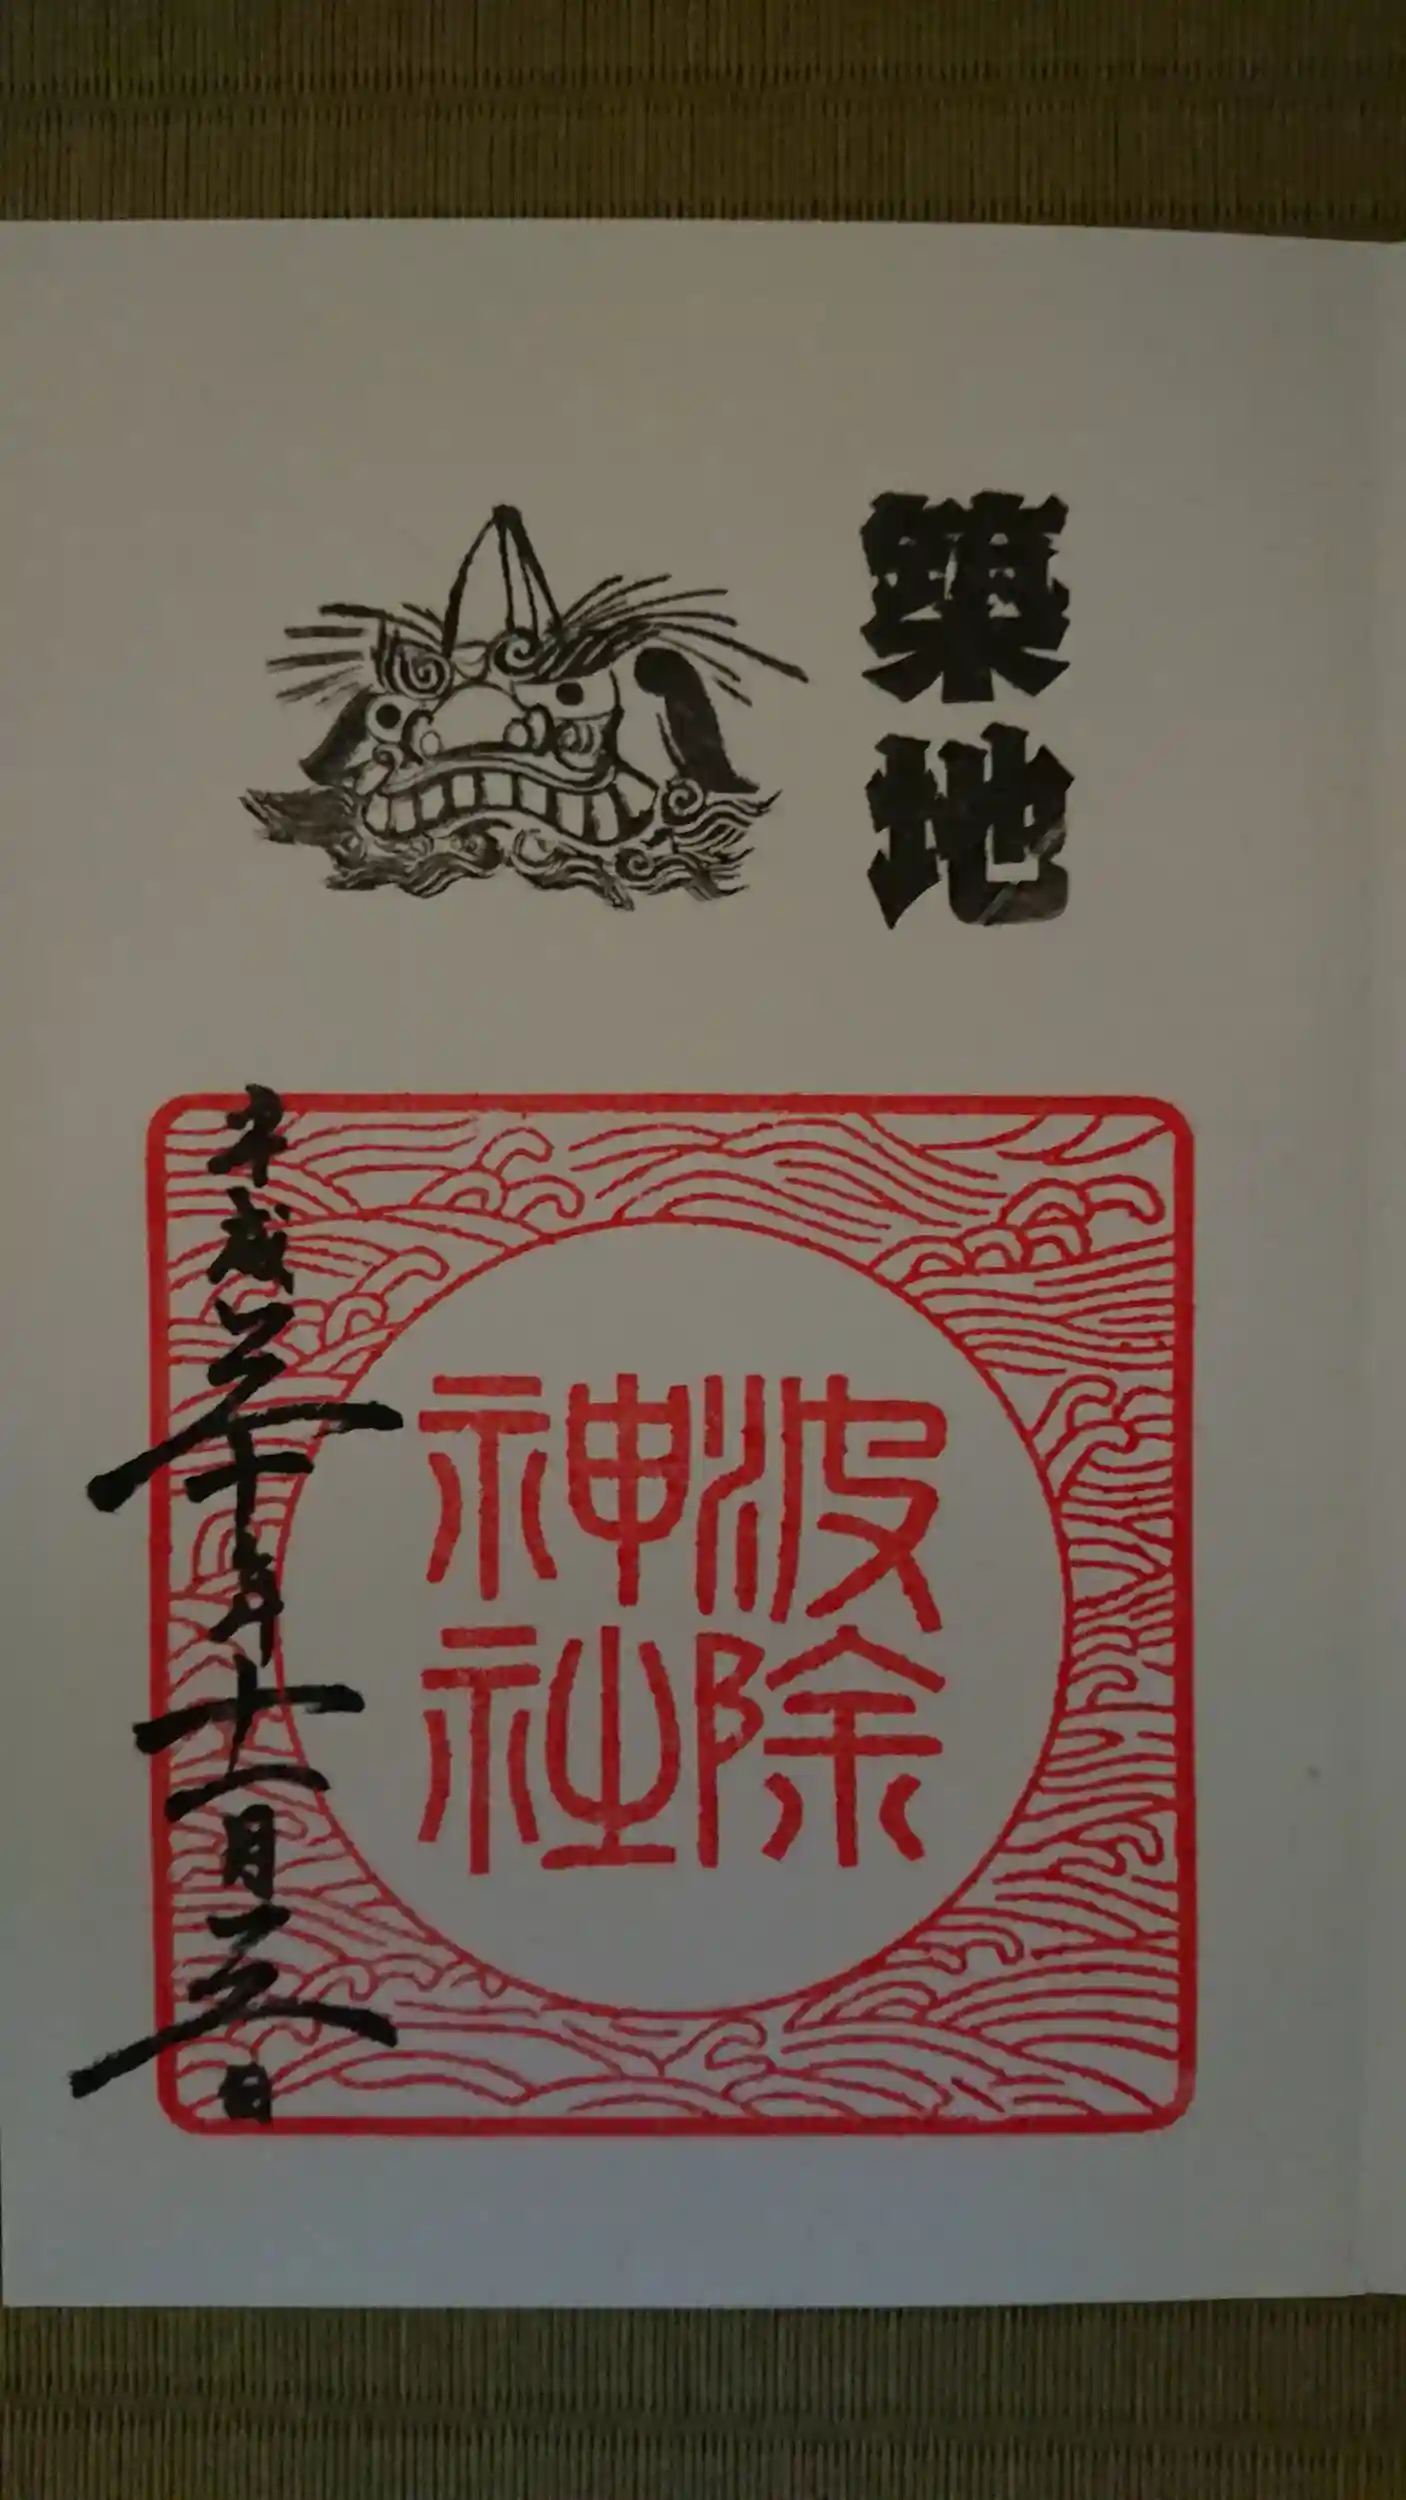 築地
波除
神社
平成三十年十一月三日